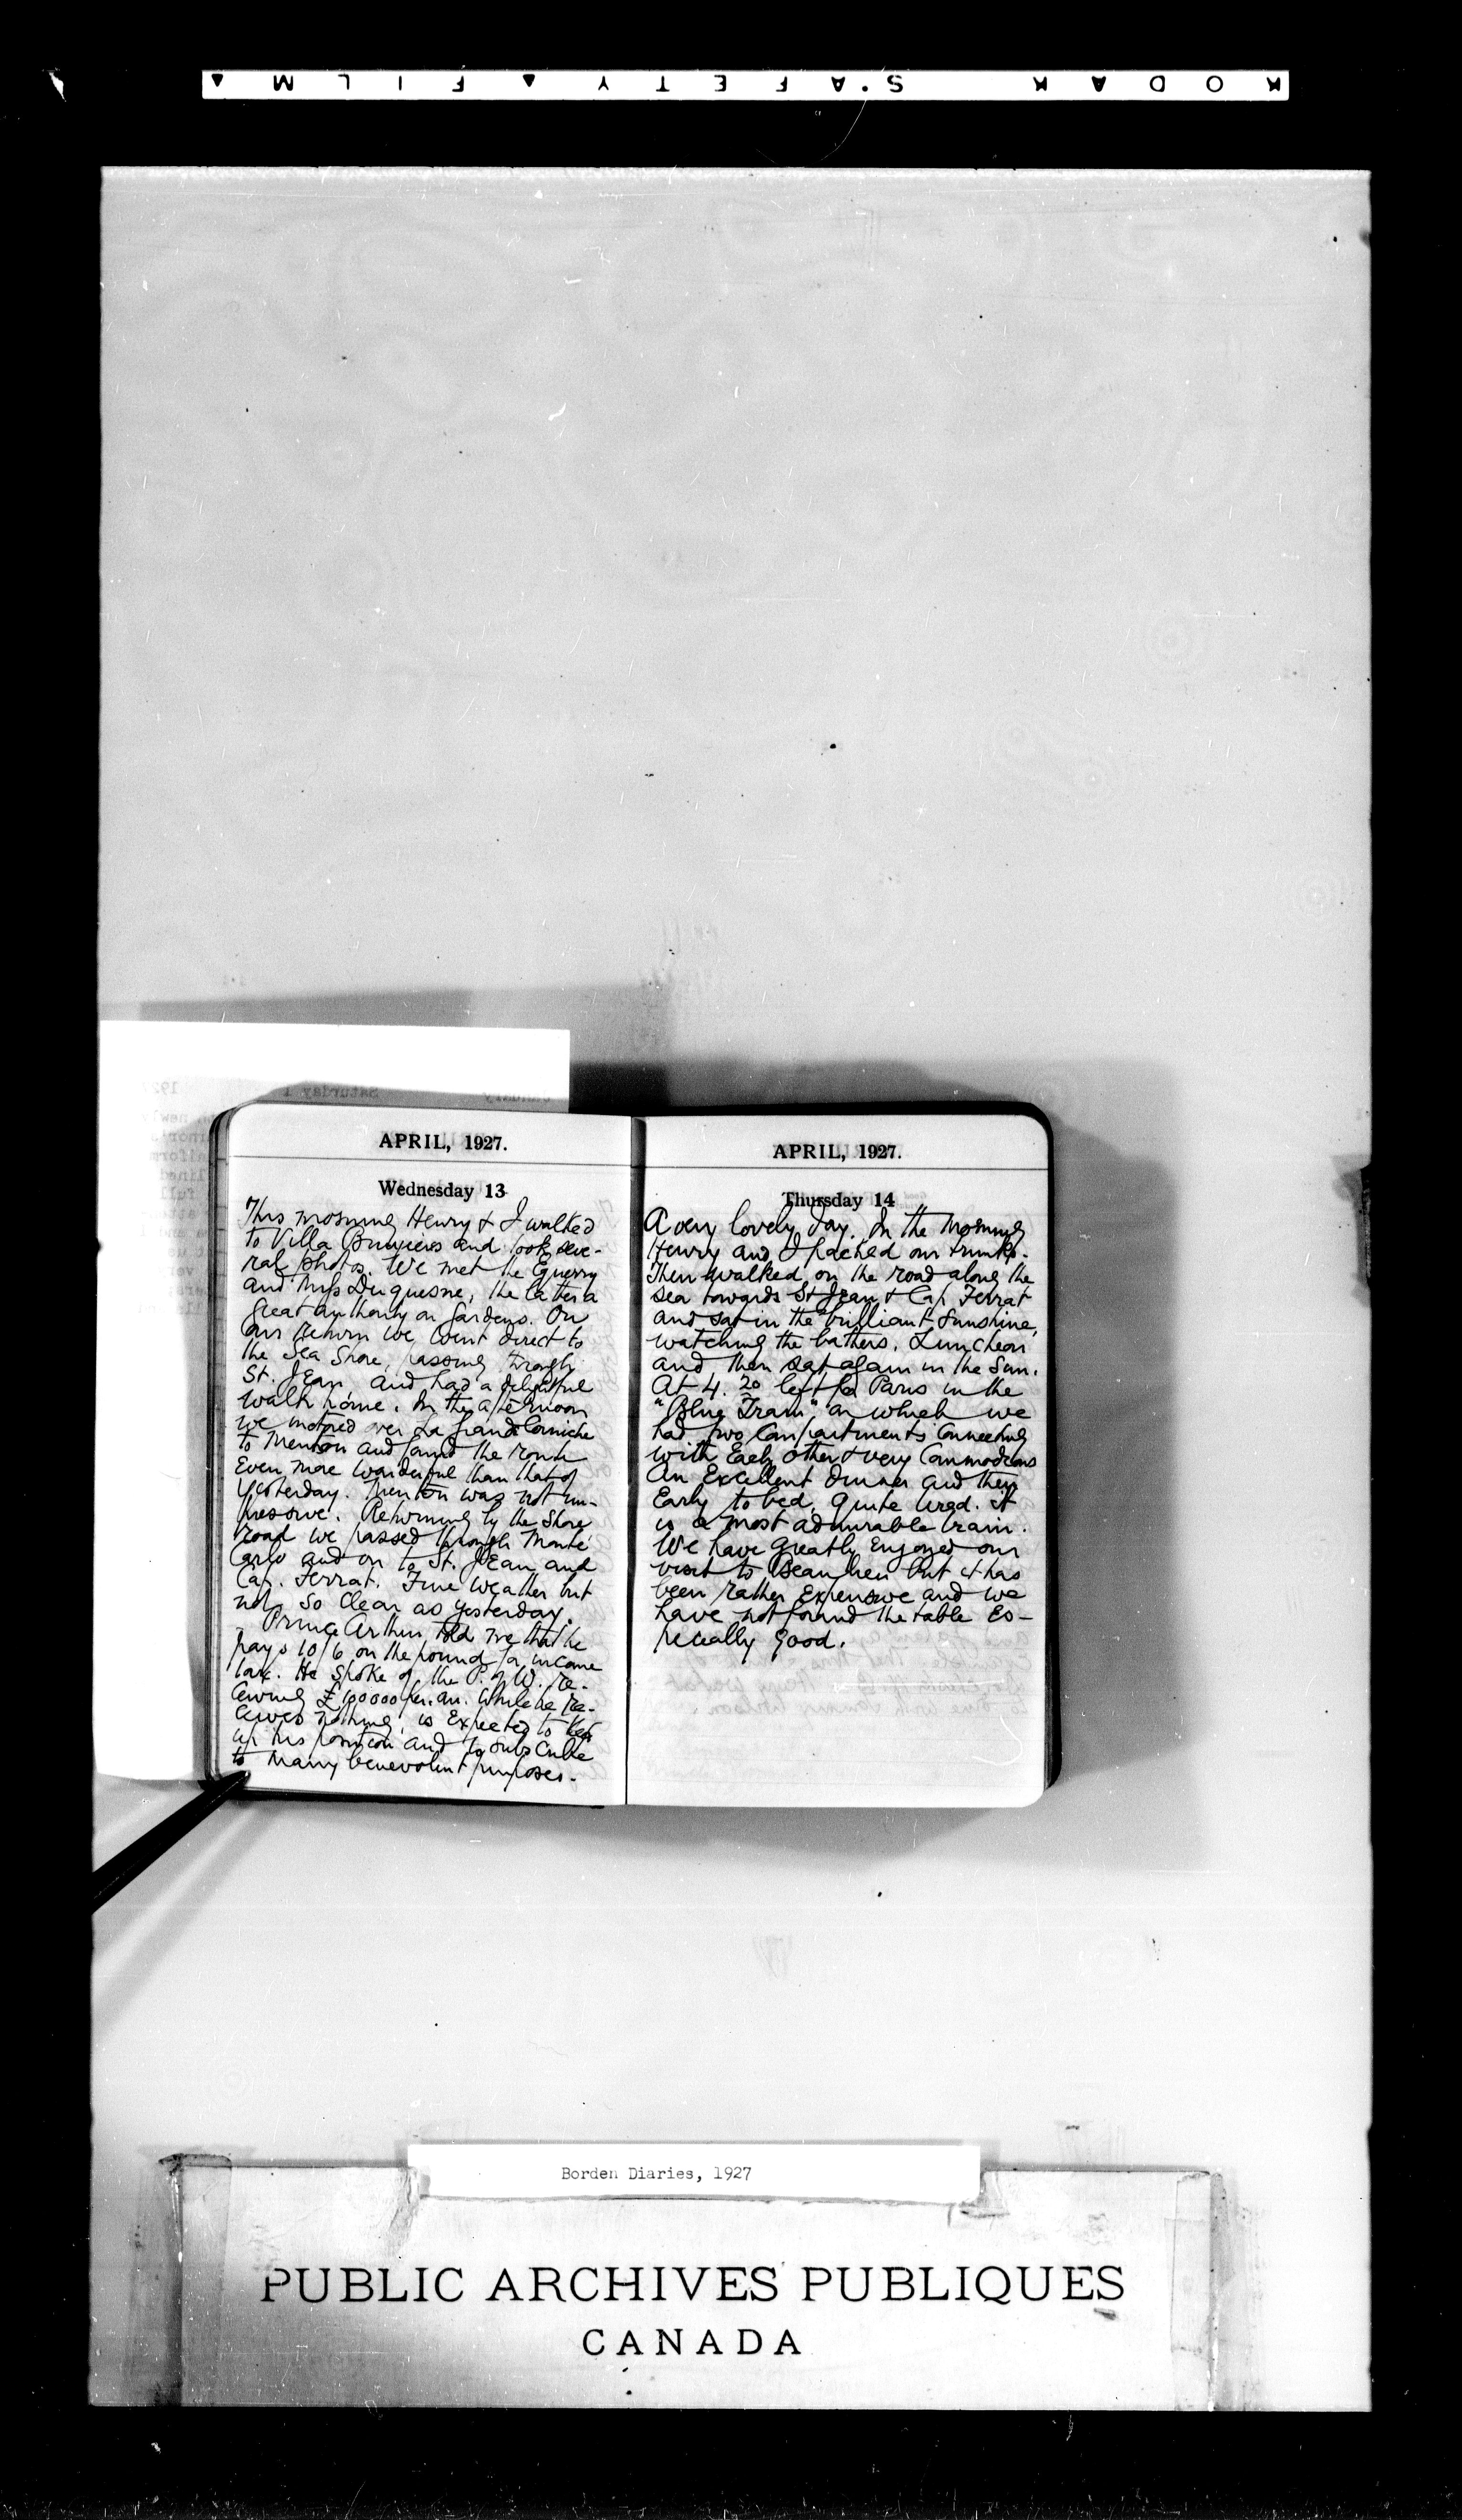 KODAK SAFETY FILM
APRIL, 1927.
Wednesday 13
This morning Henry & I walked
to Villa and took seve-
ral photos. We met the Equerry
and Miss Duquesne, the latter a
great authority on Gardens. On
our return we went direct to
the Sea Shore, passing through
St. Jean and had a delightful
walk home. In the afternoon
we motored over La Grande Corniche
to Menton and found the route
Even more wonderful than that of
Yesterday. Menton was not im-
pressive. Returning by the Shore
road we passed through Monte
Carlo and on to St. Jean and
Cap. Ferrat. Fine weather but
not so clear as yesterday.
Prince Arthur told me that he
pays 10/6 on the pound for income
tax. He spoke of the P. of W. re-
ceiving £100000 per. an. While he re-
ceives nothing, is Expected to keep
up his position and to subscribe
to many benevolent purposes.
APRIL, 1927.
Thursday 14
A very lovely day. In the morning
Henry and I packed our trunks.
Then walked on the road along the
sea towards St Jean & Cap Ferrat
and sat in the brilliant sunshine,
watching the bathers. Luncheon
and then sat again in the Sun.
At 4.20 left for Paris in the
"Blue Train", on which we
had two Compartments Connecting
with Each other & very Commodious
An Excellent dinner and then
Early to bed, quite tired. It
is a most admirable train.
We have greatly Enjoyed our
visit to Beaulieu but it has
been rather Expensive and we
have not found the table Es-
pecially good.
Borden Diaries, 1927
PUBLIC ARCHIVES PUBLIQUES
CANADA